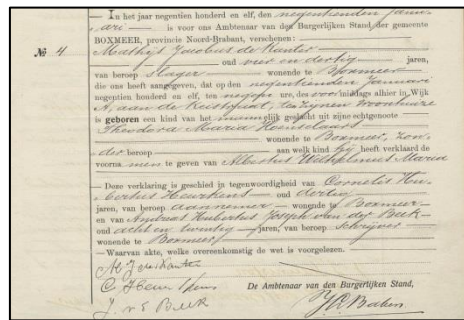 In het jaar negentien honderd en elf, den negentienden Janu-
ari is voor ons Ambtenaar van den Burgerlijken Stand, der gemeente
BOXMEER, provincie Noord-Brabant, verschenen:
№ 4 Mathijs Jacobus de Kanter
oud vier en dertig jaren,
van beroep slager wonende te Boxmeer
die ons heeft aangegeven, dat op den negentienden Januari
negentien honderd en elf, ten ure, des voormiddags alhier in Wijk
A, aan de te zijnen woonhuize
is geboren een kind van het mannelijk geslacht uit zijne echtgenoote
Theodora Maria
wonende te Boxmeer, zon-
der beroep aan welk kind hij heeft verklaard de
voornamen te geven van Albertus Wilhelmus Maria
Deze verklaring is geschied in tegenwoordigheid van Cornelis Hu-
bertus oud dertig
jaren, van beroep aannemer wonende te Boxmeer
en van Andreas Hubertus Joseph van der Beek
oud acht en twintig jaren, van beroep schrijver
wonende te Boxmeer
Waarvan akte, welke overeenkomstig de wet is voorgelezen.
M J de Kanter
C
J. v d Beek
De Ambtenaar van den Burgerlijken Stand,